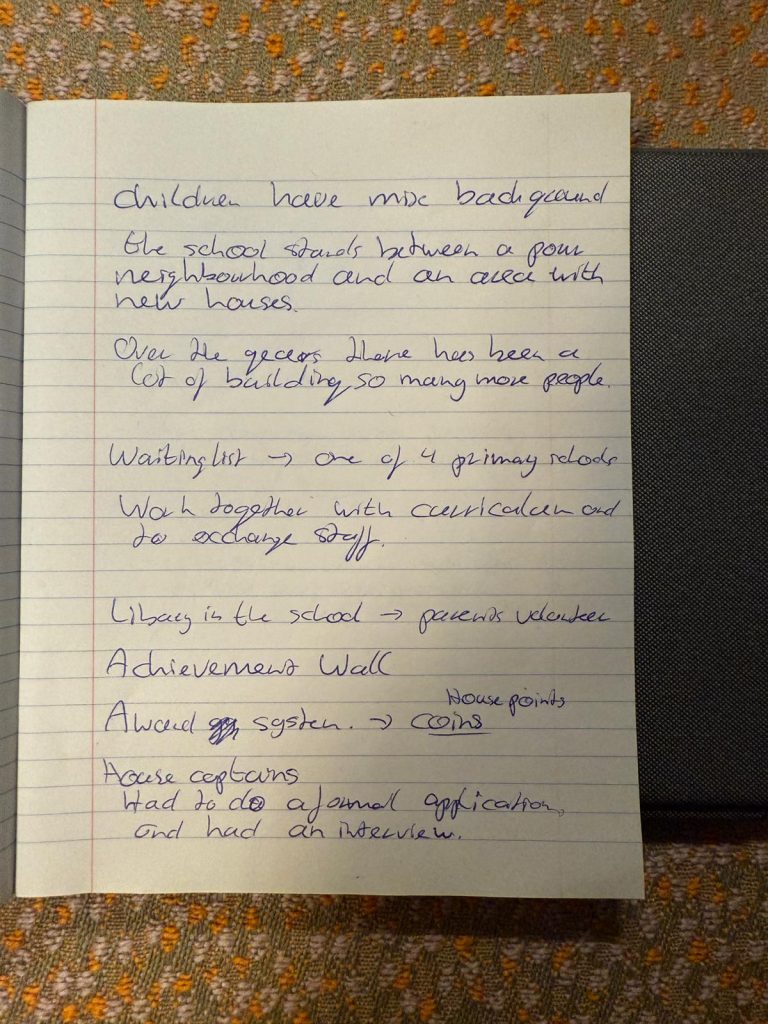 children have mix background
the school stands between a poor
neighbourhood and an area with
new houses.
Over the years there has been a
lot of building, so many more people.
Waiting list → one of 4 primary schools
Work together with curriculum and
to exchange staff.
Library in the school → parents volunteer
Achievement Wall
House points
Award system. → coins
House captains
Had to do a formal application,
and had an interview.